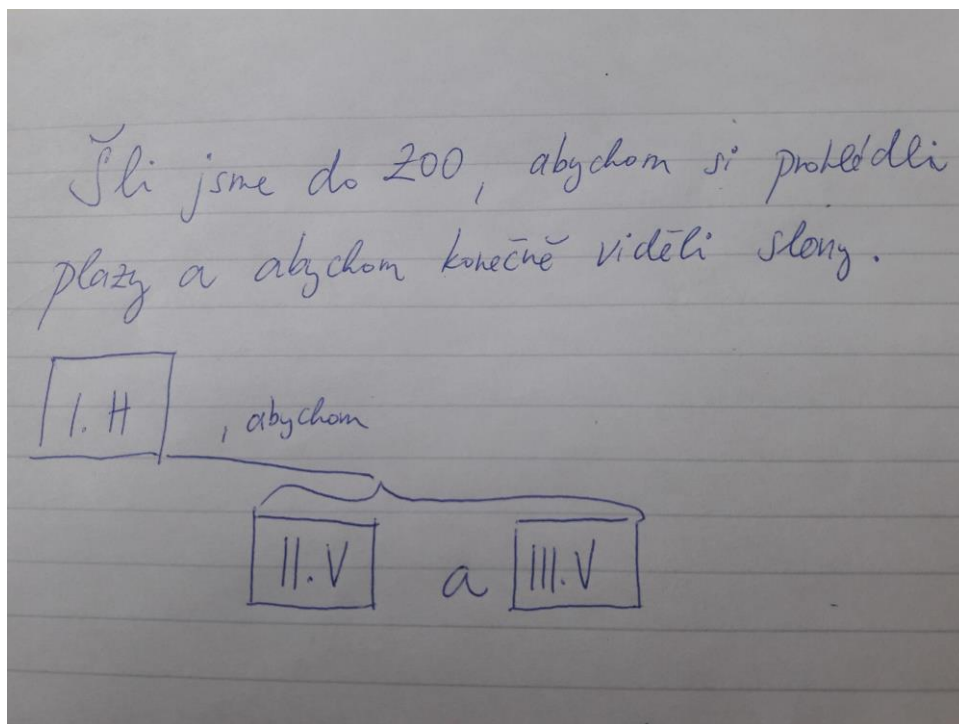 Šli jsme do ZOO, abychom si prohlédli
plazy a abychom konečně viděli slony.
I. H , abychom
II. V a III. V